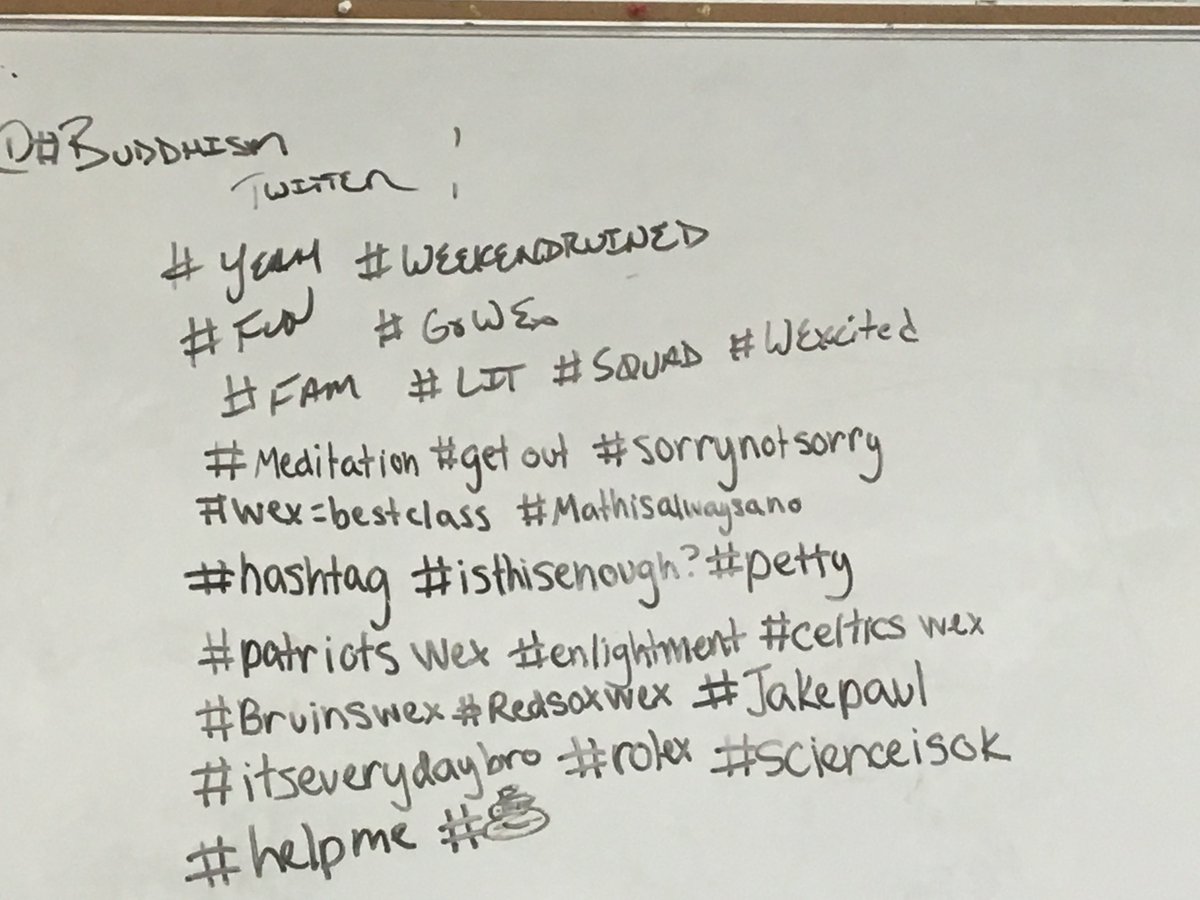 @#BUDDHISM
TWITTER !
# YEAH #WEEKENDRUINED
#FUN # GoWEx
#FAM #LIT #SQUAD #WExcited
#Meditation #get out #sorrynotsorry
#wex=bestclass #Mathisalwaysano
#hashtag #isthisenough? #petty
#patriots wex #enlightment #celtics wex
#Bruinswex #Redsoxwex #Jakepaul
#itseverydaybro #rolex #scienceisok
#helpme #💩